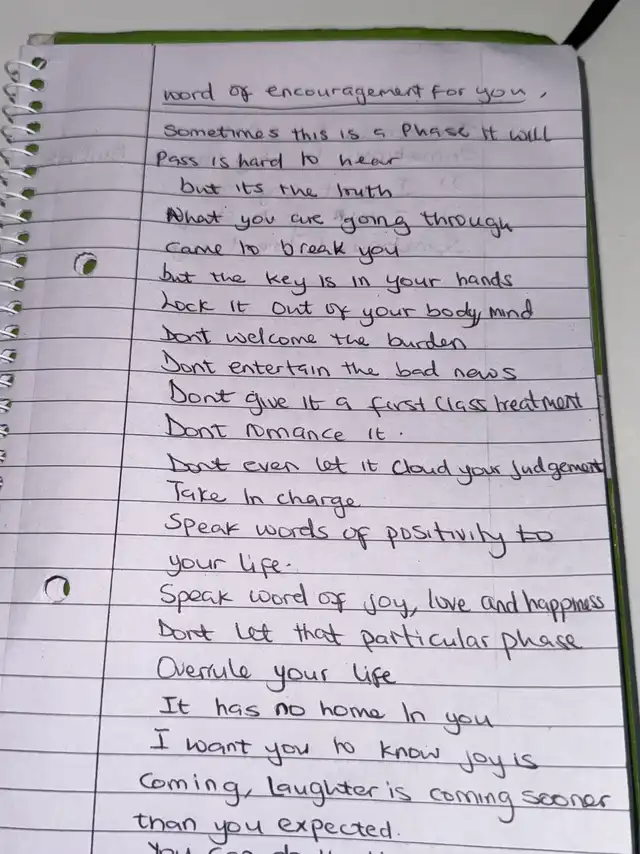 word of encouragement for you,
Sometimes this is a phase it will
Pass is hard to hear
but its the truth
What you are going through
came to break you
but the key is in your hands
Lock it out of your body, mind
Dont welcome the burden
Dont entertain the bad news
Dont give it a first class treatment
Dont romance it.
Dont even let it cloud your judgement
Take In charge
Speak words of positivity to
your life.
Speak word of joy, love and happiness
Dont let that particular phase
Overrule your life
It has no home In you
I want you to know joy is
coming, laughter is coming sooner
than you expected.
You can do